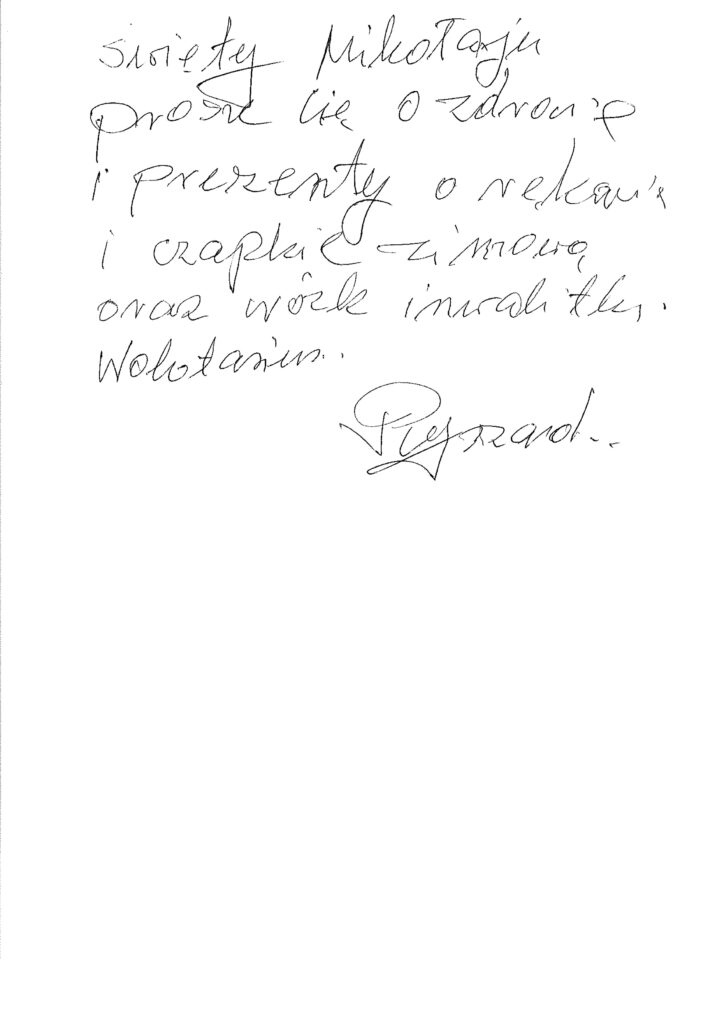 święty Mikołaju
proszę cię o zdrowie
i prezenty o rękawi
i czapkię zimową
oraz wózk inwalitki.
Ryszard..